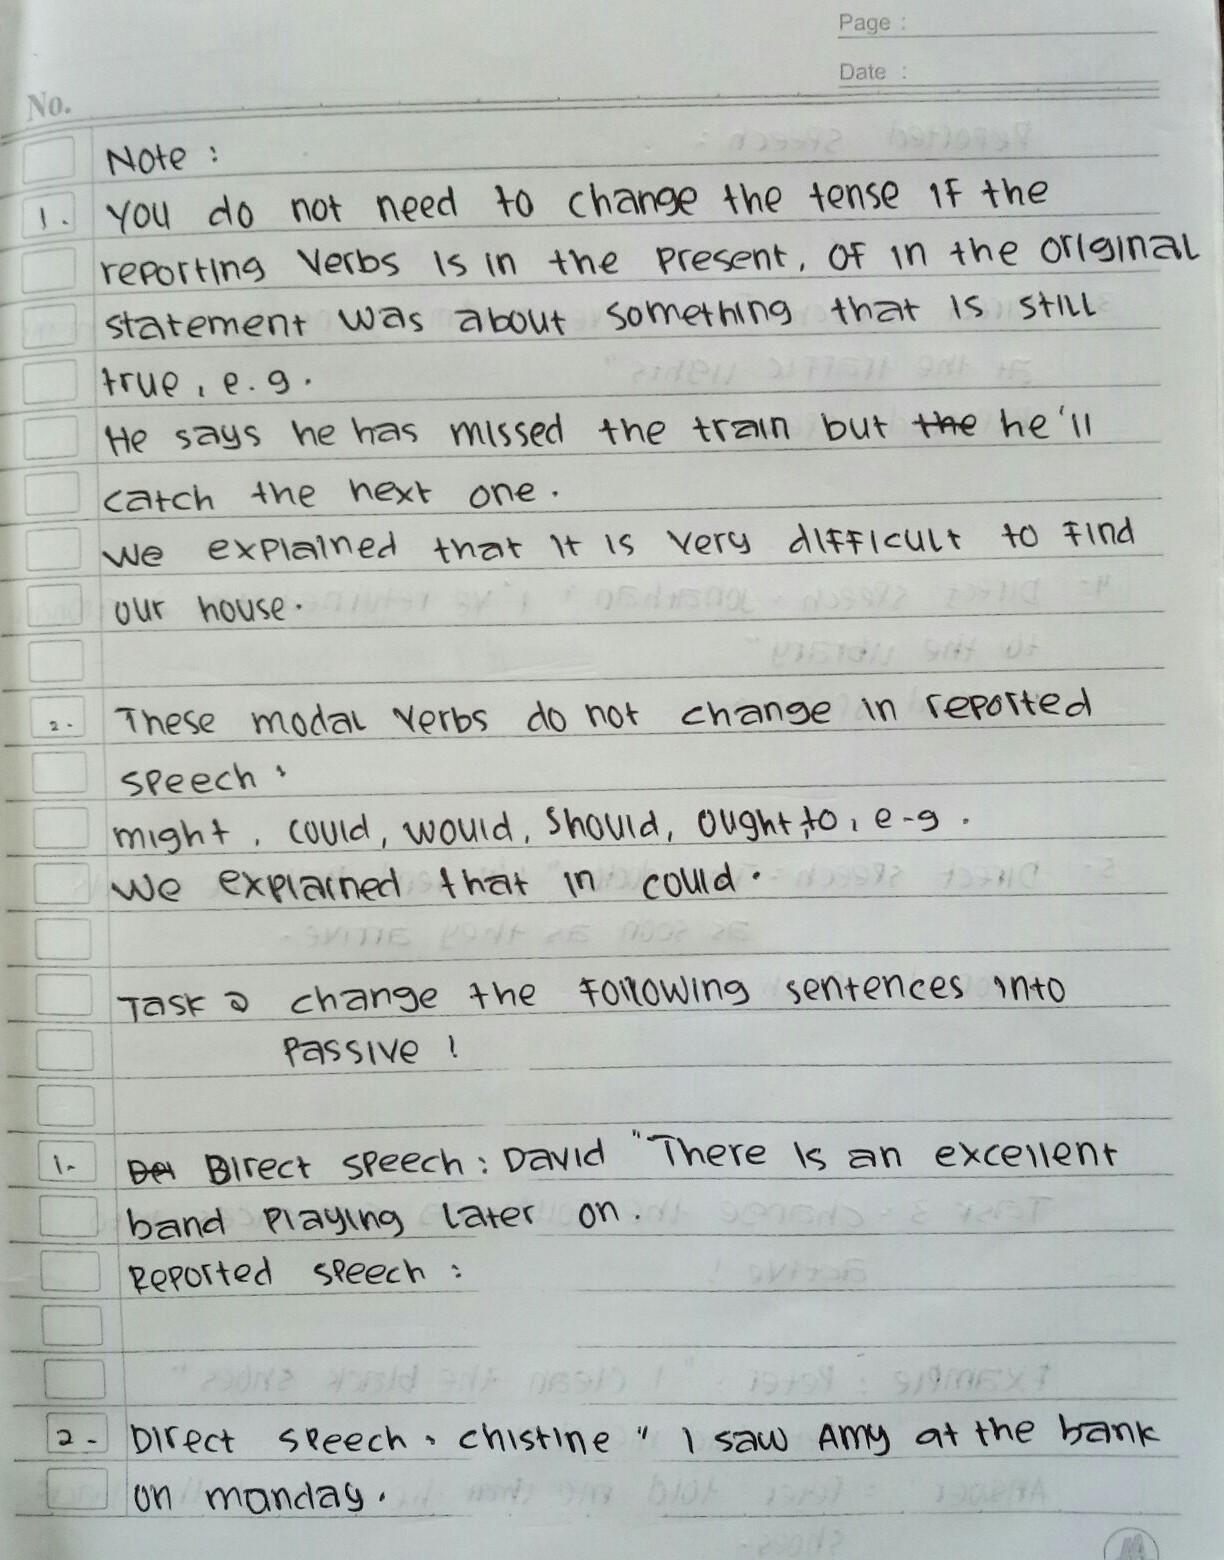 Page :
Date :
No.
Note :
1. You do not need to change the tense if the
reporting verbs is in the present, of in the original
statement was about something that is still
true, e.g.
He says he has missed the train but the he'll
catch the next one.
We explained that it is very difficult to find
our house.
2. These modal verbs do not change in reported
speech :
might, could, would, should, ought to, e-g.
We explained that in could.
Task 2 change the following sentences into
Passive !
1. Direct speech : David "There is an excellent
band playing later on.
Reported speech :
2. Direct speech : chistine " I saw Amy at the bank
on monday.